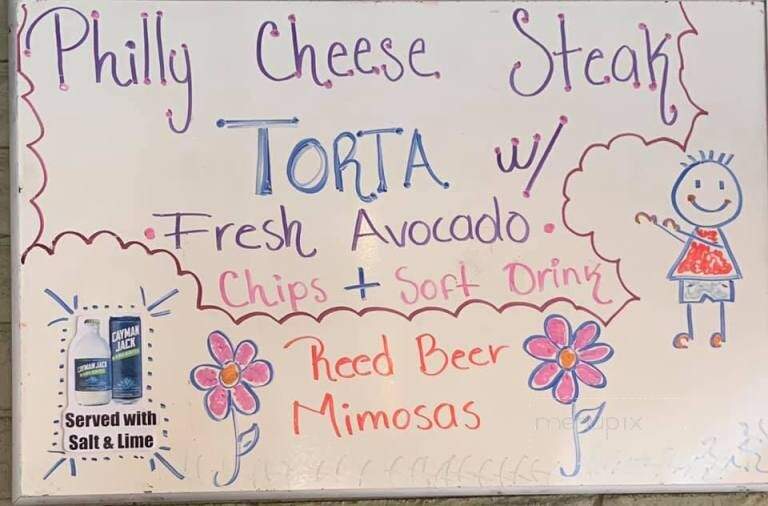 Philly Cheese Steak
TORTA w/
• Fresh Avocado •
Chips + Soft Drink
Reed Beer
Mimosas
CAYMAN JACK
CAYMAN JACK
Served with
Salt & Lime
menupix